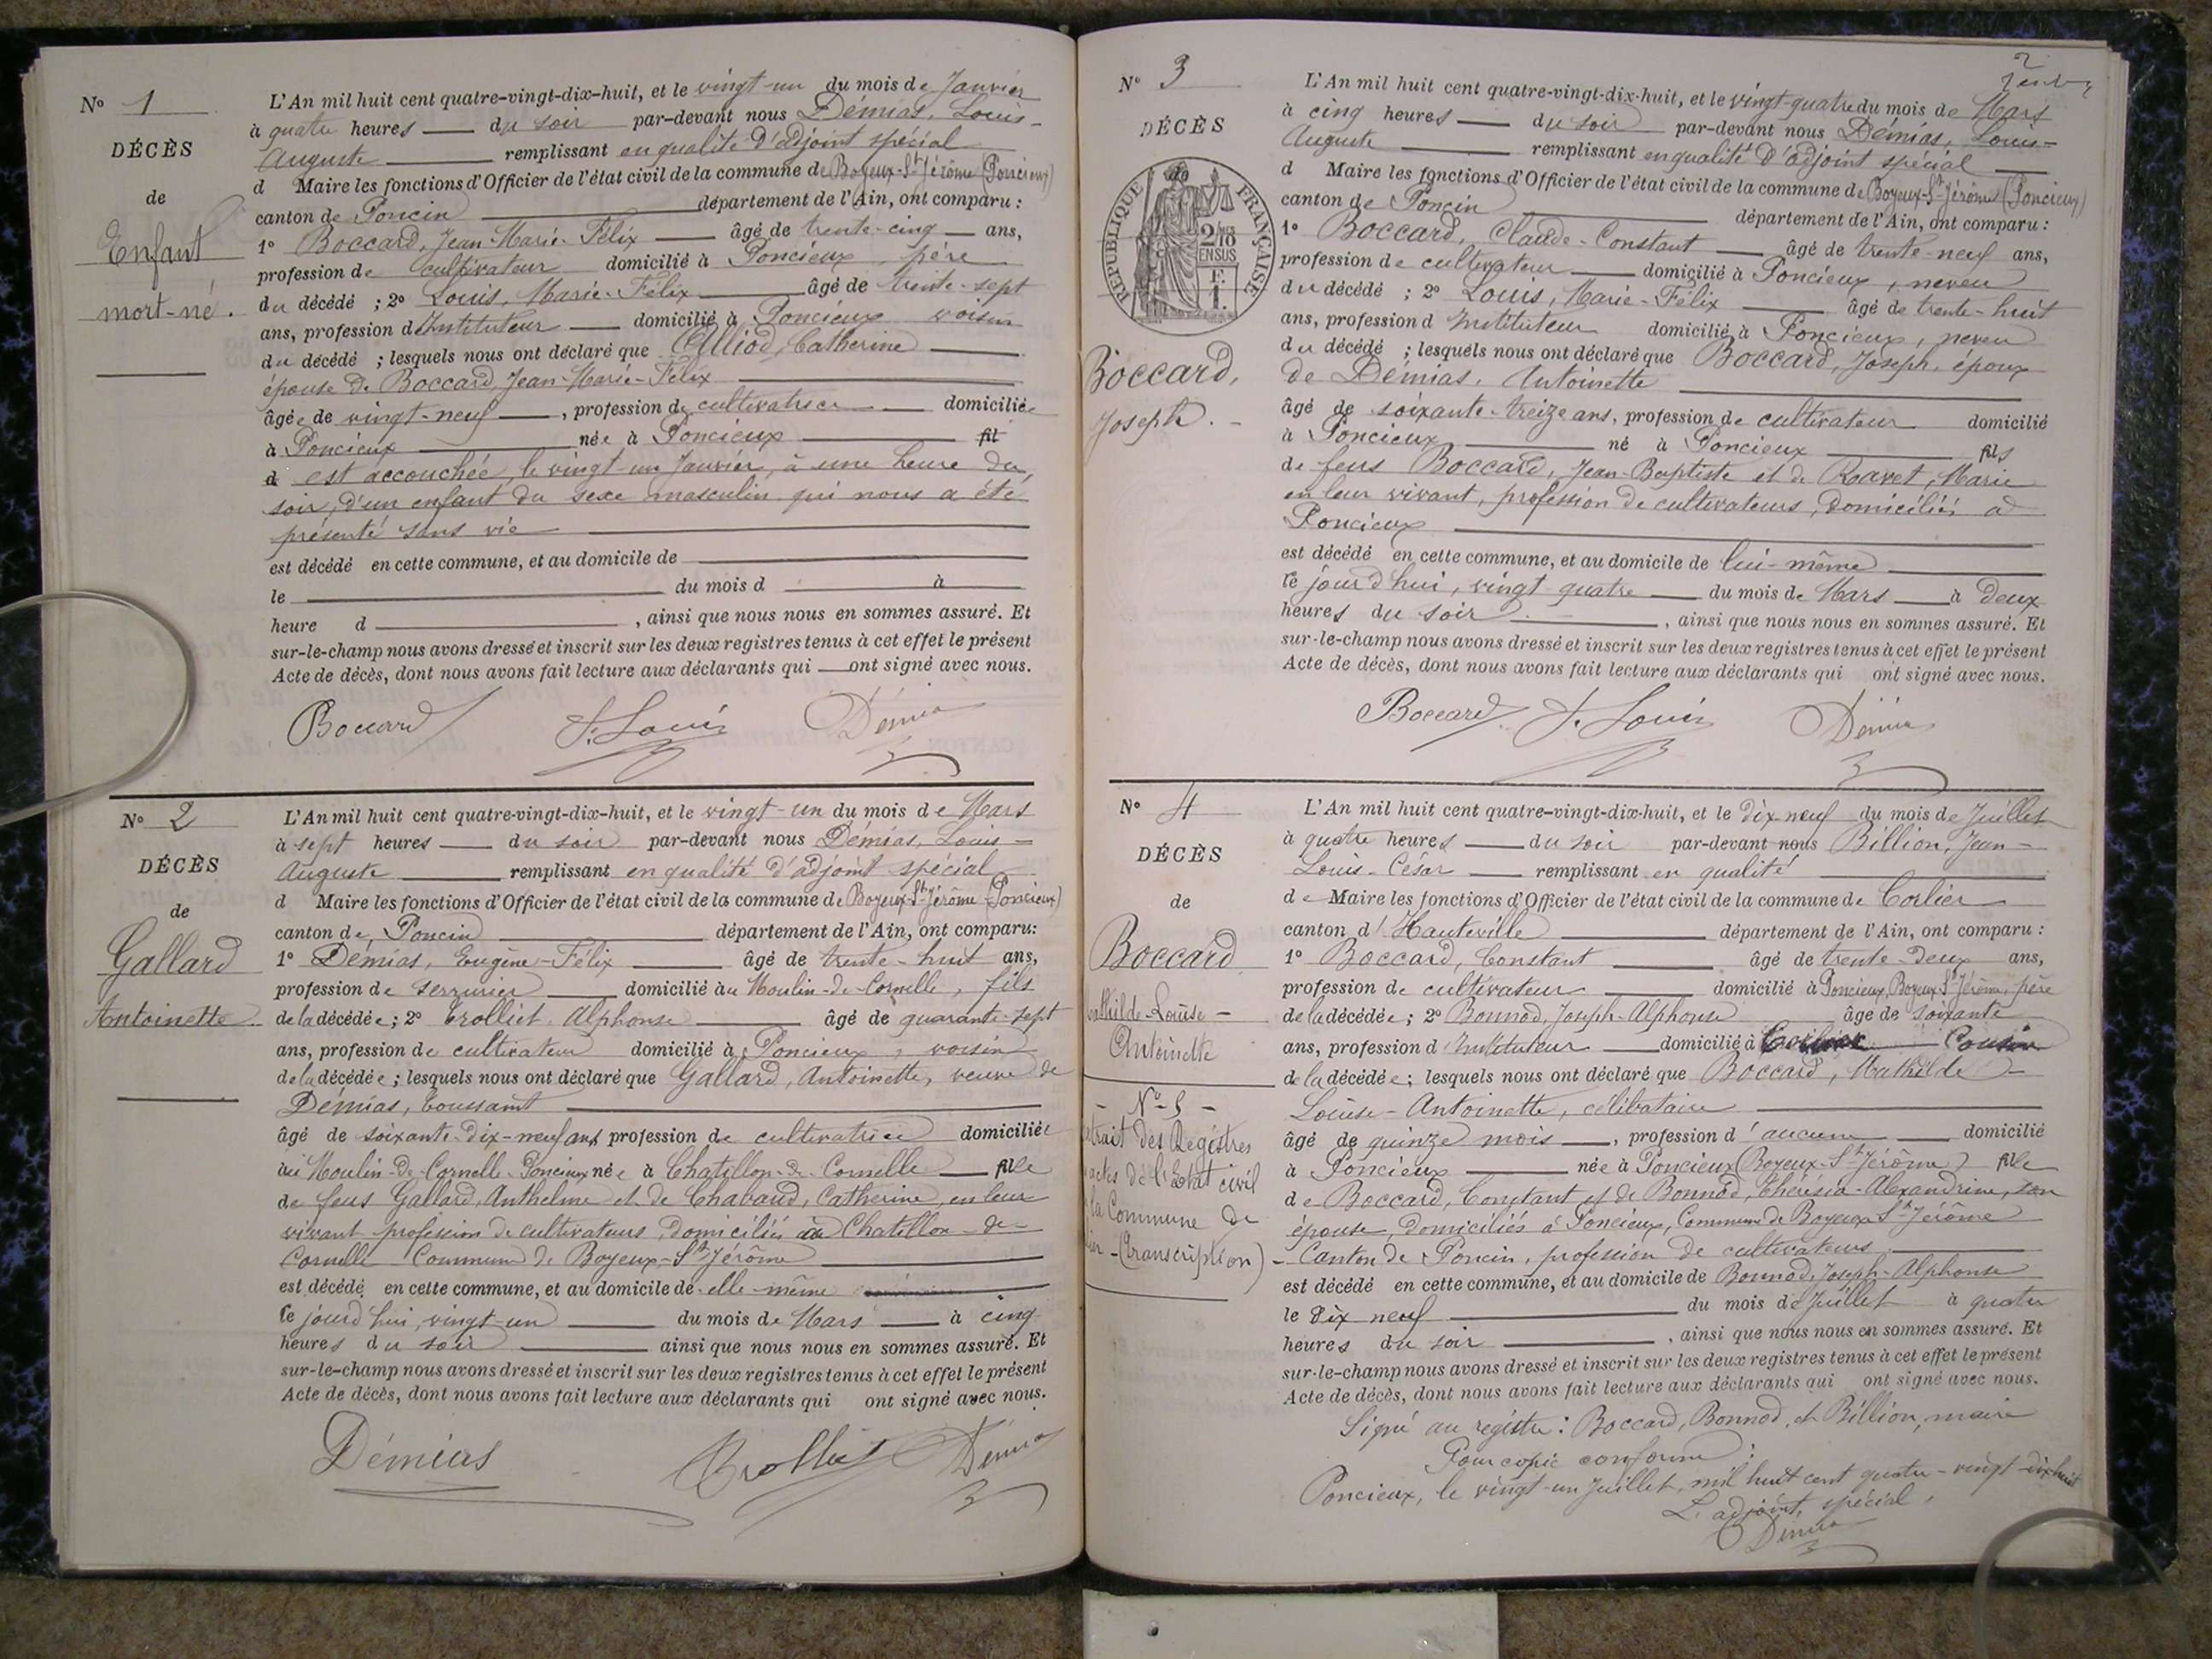 N° 1
DÉCÈS
de
Enfant
mort-né.
L'An mil huit cent quatre-vingt-dix-huit, et le vingt-un du mois de Janvier
à quatre heures du soir par-devant nous Démias, Louis-
Auguste remplissant en qualité d'adjoint spécial
d Maire les fonctions d'Officier de l'état civil de la commune de Boyeux-St-Jérôme (Poncieux)
canton de Poncin département de l'Ain, ont comparu :
1° Boccard, Jean-Marie-Félix âgé de trente-cinq ans,
profession de cultivateur domicilié à Poncieux, père
du décédé ; 2° Louis, Marie-Félix âgé de trente-sept
ans, profession d'Instituteur domicilié à Poncieux voisin
du décédé ; lesquels nous ont déclaré que Alliod, Catherine
épouse de Boccard, Jean-Marie-Félix
âgée de vingt-neuf, profession de cultivatrice domiciliée
à Poncieux née à Poncieux fil
d est accouchée, le vingt-un Janvier, à une heure du
soir, d'un enfant du sexe masculin qui nous a été
présenté sans vie
est décédé en cette commune, et au domicile de
le du mois d à
heure d , ainsi que nous nous en sommes assuré. Et
sur-le-champ nous avons dressé et inscrit sur les deux registres tenus à cet effet le présent
Acte de décès, dont nous avons fait lecture aux déclarants qui ont signé avec nous.
Boccard F. Louis Démias
N° 2
DÉCÈS
de
Gallard
Antoinette
L'An mil huit cent quatre-vingt-dix-huit, et le vingt-un du mois de Mars
à sept heures du soir par-devant nous Démias, Louis-
Auguste remplissant en qualité d'adjoint spécial
d Maire les fonctions d'Officier de l'état civil de la commune de Boyeux-St-Jérôme (Poncieux)
canton de Poncin département de l'Ain, ont comparu:
1° Démias, Eugène-Félix âgé de trente-huit ans,
profession de serrurier domicilié au Moulin-de-Cornelle, fils
de la décédée; 2° Trolliet, Alphonse âgé de quarante-sept
ans, profession de cultivateur domicilié à Poncieux, voisin
de la décédée; lesquels nous ont déclaré que Gallard, Antoinette, veuve de
Démias, Toussaint
âgé de soixante-dix-neuf ans profession de cultivatrice domiciliée
au Moulin-de-Cornelle-Poncieux née à Chatillon-de-Cornelle fille
de feus Gallard, Anthelme et de Chavand, Catherine, en leur
vivant profession de cultivateurs, domiciliés à Chatillon-de-
Cornelle Commune de Boyeux-St-Jérôme
est décédé en cette commune, et au domicile de elle-même
ce jourd'hui, vingt-un du mois de Mars à cinq
heures du soir ainsi que nous nous en sommes assuré. Et
sur-le-champ nous avons dressé et inscrit sur les deux registres tenus à cet effet le présent
Acte de décès, dont nous avons fait lecture aux déclarants qui ont signé avec nous.
Démias Trolliet Démias
2
N° 3
DÉCÈS
RÉPUBLIQUE FRANÇAISE
2/10
EN SUS
Boccard,
Joseph.
L'An mil huit cent quatre-vingt-dix-huit, et le vingt-quatre du mois de Mars
à cinq heures du soir par-devant nous Démias, Louis-
Auguste remplissant en qualité d'adjoint spécial
d Maire les fonctions d'Officier de l'état civil de la commune de Boyeux-St-Jérôme (Poncieux)
canton de Poncin département de l'Ain, ont comparu :
1° Boccard, Claude-Constant âgé de trente-neuf ans,
profession de cultivateur domicilié à Poncieux, neveu
du décédé ; 2° Louis, Marie-Félix âgé de trente-huit
ans, profession d Instituteur domicilié à Poncieux, neveu
du décédé ; lesquels nous ont déclaré que Boccard, Joseph, époux
de Démias, Antoinette
âgé de soixante-treize ans, profession de cultivateur domicilié
à Poncieux né à Poncieux fils
de feus Boccard, Jean-Baptiste et de Ravet, Marie
en leur vivant, profession de cultivateurs, domiciliés à
Poncieux
est décédé en cette commune, et au domicile de lui-même
ce jourd'hui, vingt-quatre du mois de Mars à deux
heures du soir, ainsi que nous nous en sommes assuré. Et
sur-le-champ nous avons dressé et inscrit sur les deux registres tenus à cet effet le présent
Acte de décès, dont nous avons fait lecture aux déclarants qui ont signé avec nous.
Boccard F. Louis Démias
N° 4
DÉCÈS
de
Boccard
Mathilde-Louise-
Antoinette
L'An mil huit cent quatre-vingt-dix-huit, et le dix neuf du mois de Juillet
à quatre heures du soir par-devant nous Billion, Jean-
Louis-César remplissant en qualité
de Maire les fonctions d'Officier de l'état civil de la commune de Corlier
canton d'Hauteville département de l'Ain, ont comparu :
1° Boccard, Constant âgé de trente-deux ans,
profession de cultivateur domicilié à Poncieux, Boyeux-St-Jérôme, père
de la décédée; 2° Bonnod, Joseph-Alphonse âgé de soixante
ans, profession d'Instituteur domicilié à Corlier Cousin
de la décédée; lesquels nous ont déclaré que Boccard, Mathilde-
Louise-Antoinette, célibataire
âgé de quinze mois, profession d'aucune domicilié
à Poncieux née à Poncieux (Boyeux-St-Jérôme) fille
de Boccard, Constant et de Bonnod, Thérésia-Alexandrine, son
épouse, domiciliés à Poncieux, Commune de Boyeux-St-Jérôme
Canton de Poncin, profession de cultivateurs
est décédé en cette commune, et au domicile de Bonnod, Joseph-Alphonse
le dix neuf du mois de Juillet à quatre
heures du soir, ainsi que nous nous en sommes assuré. Et
sur-le-champ nous avons dressé et inscrit sur les deux registres tenus à cet effet le présent
Acte de décès, dont nous avons fait lecture aux déclarants qui ont signé avec nous.
Signé au registre : Boccard, Bonnod, et Billion, maire
Pour copie conforme :
Poncieux, le vingt-un Juillet, mil huit cent quatre-vingt-dix huit
L'adjoint spécial,
Démias
des Registres
actes de l'Etat civil
la Commune de
(transcription)